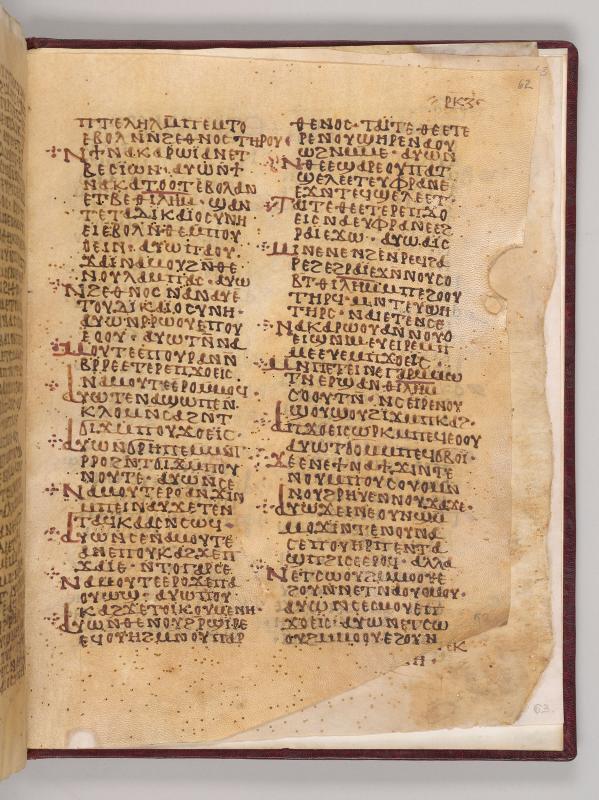 ⲣⲕⲍ
ⲡⲧⲉⲗⲏⲗⲙⲡⲉⲙⲧⲟ
ⲉⲃⲟⲗⲛⲛϩⲉⲑⲛⲟⲥ ⲧⲏⲣⲟⲩ
ⲛϯⲛⲁⲕⲁⲣⲱⲓⲁⲛⲉⲧ
ⲃⲉⲥⲓⲱⲛ· ⲁⲩⲱⲛϯ
ⲛⲁⲕⲁⲧⲟⲟⲧⲉⲃⲟⲗⲁⲛ
ⲉⲧⲃⲉⲑⲓⲗⲏⲙ· ϣⲁⲛ
ⲧⲉⲧⲁⲇⲓⲕⲁⲓⲟⲥⲩⲛⲏ
ⲉⲓⲉⲃⲟⲗⲛⲑⲉⲙⲡⲟⲩ
ⲟⲉⲓⲛ· ⲁⲩⲱⲡⲁⲟⲩ
ϫⲁⲓⲛⲁⲙⲟⲩϩⲛⲑⲉ
ⲛⲟⲩⲗⲁⲙⲡⲁⲥ· ⲁⲩⲱ
ⲛϩⲉⲑⲛⲟⲥⲛⲁⲛⲁⲩⲉ
ⲧⲟⲩⲇⲓⲕⲁⲓⲟⲥⲩⲛⲏ·
ⲁⲩⲱⲛⲣⲣⲱⲟⲩⲉⲡⲟⲩ
ⲉⲟⲟⲩ· ⲁⲩⲱⲧⲛⲛⲁ
ⲙⲟⲩⲧⲉⲉⲡⲟⲩⲣⲁⲛⲛ
ⲃⲣⲣⲉⲉⲧⲉⲣⲉⲡϫⲟⲉⲓⲥ
ⲛⲁⲙⲟⲩⲧⲉⲉⲣⲟⲙⲙⲟϥ·
ⲁⲩⲱⲧⲉⲛⲁϣⲱⲡⲉⲛ
ⲕⲗⲟⲙⲛⲥⲁϩⲛⲧ
ϭⲓϫⲙⲡⲟⲩϫⲟⲉⲓⲥ·
ⲁⲩⲱⲛϭⲣⲏⲡⲉⲙⲙⲛⲧ
ⲣⲣⲟϩⲛⲧϭⲓϫⲙⲡⲟⲩ
ⲛⲟⲩⲧⲉ· ⲁⲩⲱⲛⲥⲉ
ⲛⲁⲙⲟⲩⲧⲉⲣⲟⲁⲛϫⲓⲛ
ⲙⲡⲉⲓⲛⲁⲩϫⲉⲧⲉⲛ
ⲧⲁϥⲕⲁⲁⲥⲛⲥⲱϥ·
ⲁⲩⲱⲛⲥⲉⲛⲁⲙⲟⲩⲧⲉ
ⲁⲛⲉⲡⲟⲩⲕⲁϩϫⲉⲡ
ϫⲁⲓⲉ· ⲛⲧⲟⲅⲁⲣⲥⲉ
ⲛⲁⲙⲟⲩⲧⲉⲉⲣⲟϫⲉⲡⲁ
ⲟⲩⲱϣ· ⲁⲩⲱⲡⲟⲩ
ⲕⲁϩϫⲉⲧⲟⲓⲕⲟⲩⲙⲉⲛⲏ·
ⲁⲩⲱⲛⲑⲉⲛⲟⲩϩⲣϣⲓⲣⲉ
ⲉϥⲟⲩⲏϩⲙⲛⲟⲩⲡⲁⲣ
ⲑⲉⲛⲟⲥ· ⲧⲁⲓⲧⲉⲑⲉⲉⲧⲉ
ⲣⲉⲛⲟⲩϣⲏⲣⲉⲛⲁⲟⲩ
ⲱϩⲛⲙⲙⲉ· ⲁⲩⲱⲛ
ⲑⲉⲉϣⲁⲣⲉⲟⲩⲡⲁⲧ
ϣⲉⲗⲉⲉⲧⲉⲩⲫⲣⲁⲛⲉ
ⲉϫⲛⲧϥϣⲉⲗⲉⲉⲧ·
ⲧⲁⲓⲧⲉⲑⲉⲉⲧⲉⲣⲉⲡϫⲟ
ⲉⲓⲥⲛⲁⲉⲩⲫⲣⲁⲛⲉⲉϩ
ⲣⲁⲓⲉϫⲱ· ⲁⲩⲱⲁⲓⲥ
ⲙⲓⲛⲉⲛⲉⲛϩⲉⲛⲣⲉϥϩⲁ
ⲣⲉϩⲉϩⲣⲁⲓⲉϫⲛⲛⲟⲩⲥⲟ
ⲃⲧⲑⲓⲗⲏⲙⲙⲡⲉϩⲟⲟⲩ
ⲧⲏⲣϥ· ⲙⲛⲧⲉⲩϣⲏ
ⲧⲏⲣⲥ· ⲛⲁⲓⲉⲧⲉⲛⲥⲉ
ⲛⲁⲕⲁⲣⲱⲟⲩⲁⲛⲛⲟⲩⲟ
ⲉⲓϣⲛⲓⲙⲉⲩⲉⲓⲣⲉⲙⲡ
ⲙⲉⲉⲩⲉⲙⲡϫⲟⲉⲓⲥ·
ⲙⲛⲡⲉⲧⲉⲓⲛⲉⲅⲁⲣⲙⲙⲱ
ⲧⲛⲉⲣϣⲁⲛⲑⲓⲗⲏⲙ
ⲥⲟⲟⲩⲧⲛ· ⲛⲥⲉⲓⲣⲉⲛⲟⲩ
ϣⲟⲩϣⲟⲩϩⲓϫⲙⲡⲕⲁϩ·
ⲁⲡϫⲟⲉⲓⲥⲱⲣⲕⲙⲡⲉϥⲉⲟⲟⲩ
ⲁⲩⲱⲧϭⲟⲙⲙⲡⲉϥϭⲃⲟⲓ·
ϫⲉⲉⲛⲉϯⲛⲁϯϫⲓⲛⲧⲉ
ⲛⲟⲩⲙⲡⲟⲩⲥⲟⲩⲟⲙⲛ
ⲛⲟⲩϩⲣⲏⲩⲉⲛⲛⲟⲩϫⲁϫⲉ·
ⲁⲩⲱϫⲉⲉⲛⲉⲟⲩⲛϣⲙ
ⲙⲟϫⲓⲛⲧⲉⲛⲟⲩⲛⲁ
ⲥⲉⲡⲟⲩⲏⲣⲡⲉⲛⲧⲁ
ϣⲡϩⲓⲥⲉⲉⲣⲟϥ· ⲁⲗⲗⲁ
ⲛⲉⲧⲥⲱⲟⲩϩⲙⲙⲟⲟⲩⲉ
ϩⲟⲩⲛⲛⲉⲧⲛⲁⲟⲩⲟⲙⲟⲩ·
ⲁⲩⲱⲛⲥⲉⲥⲙⲟⲩⲉⲡ
ϫⲟⲉⲓⲥ· ⲁⲩⲱⲛⲉⲧⲥⲱ
ⲟⲩϩⲙⲙⲟⲟⲩⲉϩⲟⲩⲛ
62
63